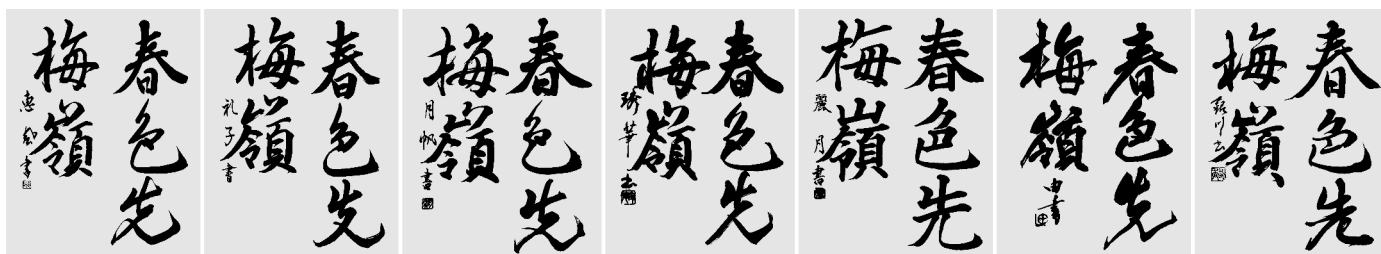 春色先
梅嶺
春色先
梅嶺
礼子書
春色先
梅嶺
月帆書
春色先
梅嶺
春色先
梅嶺
麗月書
春色先
梅嶺
由書
春色先
梅嶺